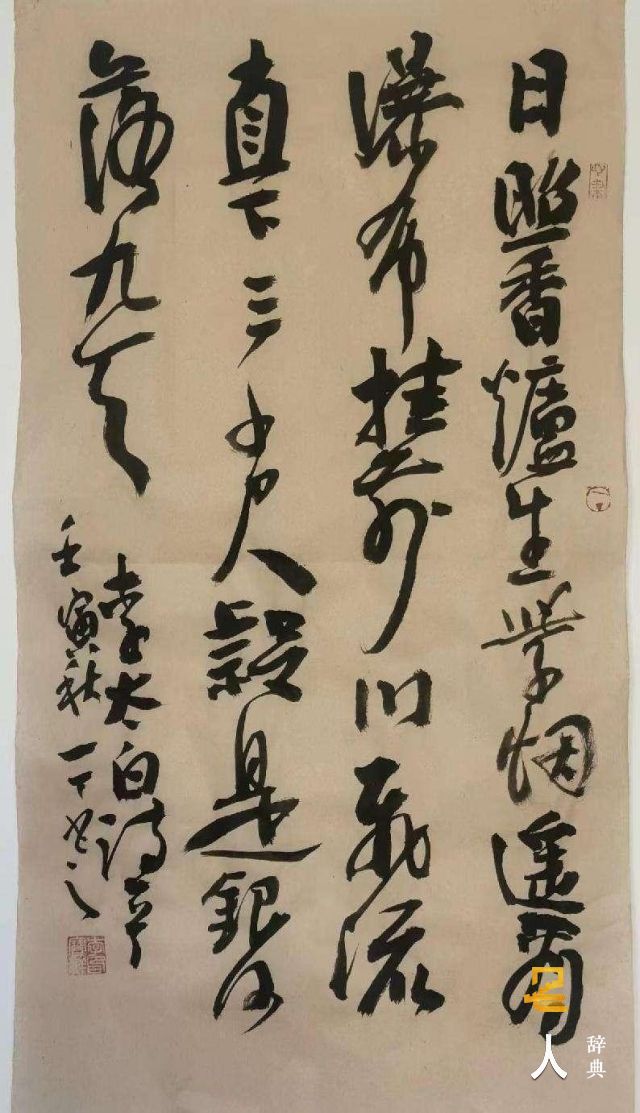 日照香爐生紫烟遥看
瀑布挂前川飛流
直下三千尺疑是銀河
落九天
李太白詩
壬寅秋一丁书之
人
辞典